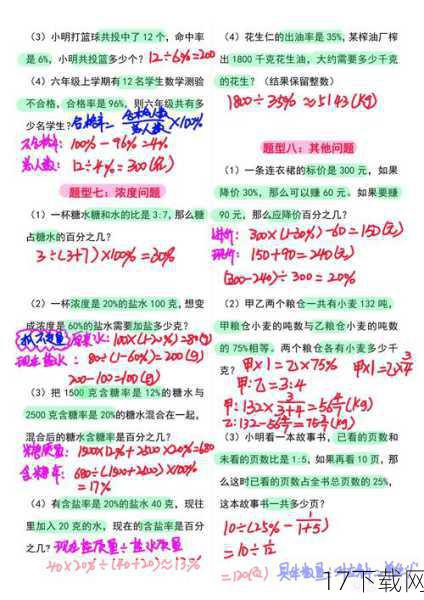 （3）小明打篮球共投中了 12 个，命中率
是 6%，小明共投篮多少个？ 12÷6%=200
（4）六年级上学期有 12 名学生数学测验
不合格，合格率是 96%，则六年级共有多
少名学生？ 合格率= 合格人数/总人数×100%
不合格率：100%-96%=4%
总人数：12÷4%=300(名)
题型七：浓度问题
（1）一杯糖水糖和水的比是 3:7，那么糖
占糖水的百分之几？
3÷(3+7)×100%=30%
（2）一杯浓度是 20%的盐水 100 克，想变
成浓度是 60%的盐水需要加盐多少克？
水：100×(1-20%)=80(g)
现在盐水：80÷(1-60%)=200(g)
200-100=100(g)
（3）把 1500 克含糖率是 12%的糖水与
2500 克含糖率是 20%的糖水混合在一起，
混合后的糖水含糖率是百分之几？
糖质量：1500×12%+2500×20%=680
含糖率：680÷(1500+2500)×100%
=17%
（4）有含盐率是 20%的盐水 40 克，现往
里加入 20 克的水，现在的含盐率是百分
之几？ 现在盐质量÷盐水质量
40×20%÷(40+20)≈13%
（4）花生仁的出油率是 35%，某榨油厂榨
出 1800 千克花生油，大约需要多少千克
的花生？（结果保留整数）
1800÷35%≈5143(kg)
题型八：其他问题
（1）一条连衣裙的标价是 300 元，如果
降价 30%，那么可以赚 60 元。如果要赚
90 元，那么应降价百分之几？
进价：300×(1-30%)-60=150(元)
现价：150+90=240(元)
(300-240)÷300=20%
（2）甲乙两个粮仓一共有小麦 132 吨，
甲粮仓小麦的吨数与乙粮仓小麦的吨数
的 75%相等。两个粮仓各有小麦多少千
克？ 甲×1=乙×75% 甲×1=乙×3/4
甲:乙=3:4
甲：132×3/3+4=56 4/7(kg)
乙：132-56 4/7=75 3/7(kg)
（3）小明看一本故事书，已看的页数和
未看的页数比是 1:5，如果再看 10 页，那
么这时已看的页数占全书总页数的 25%，
这本故事书一共多少页？
10÷(25%-1/1+5)
=10÷1/12
=120(页)
17下载网